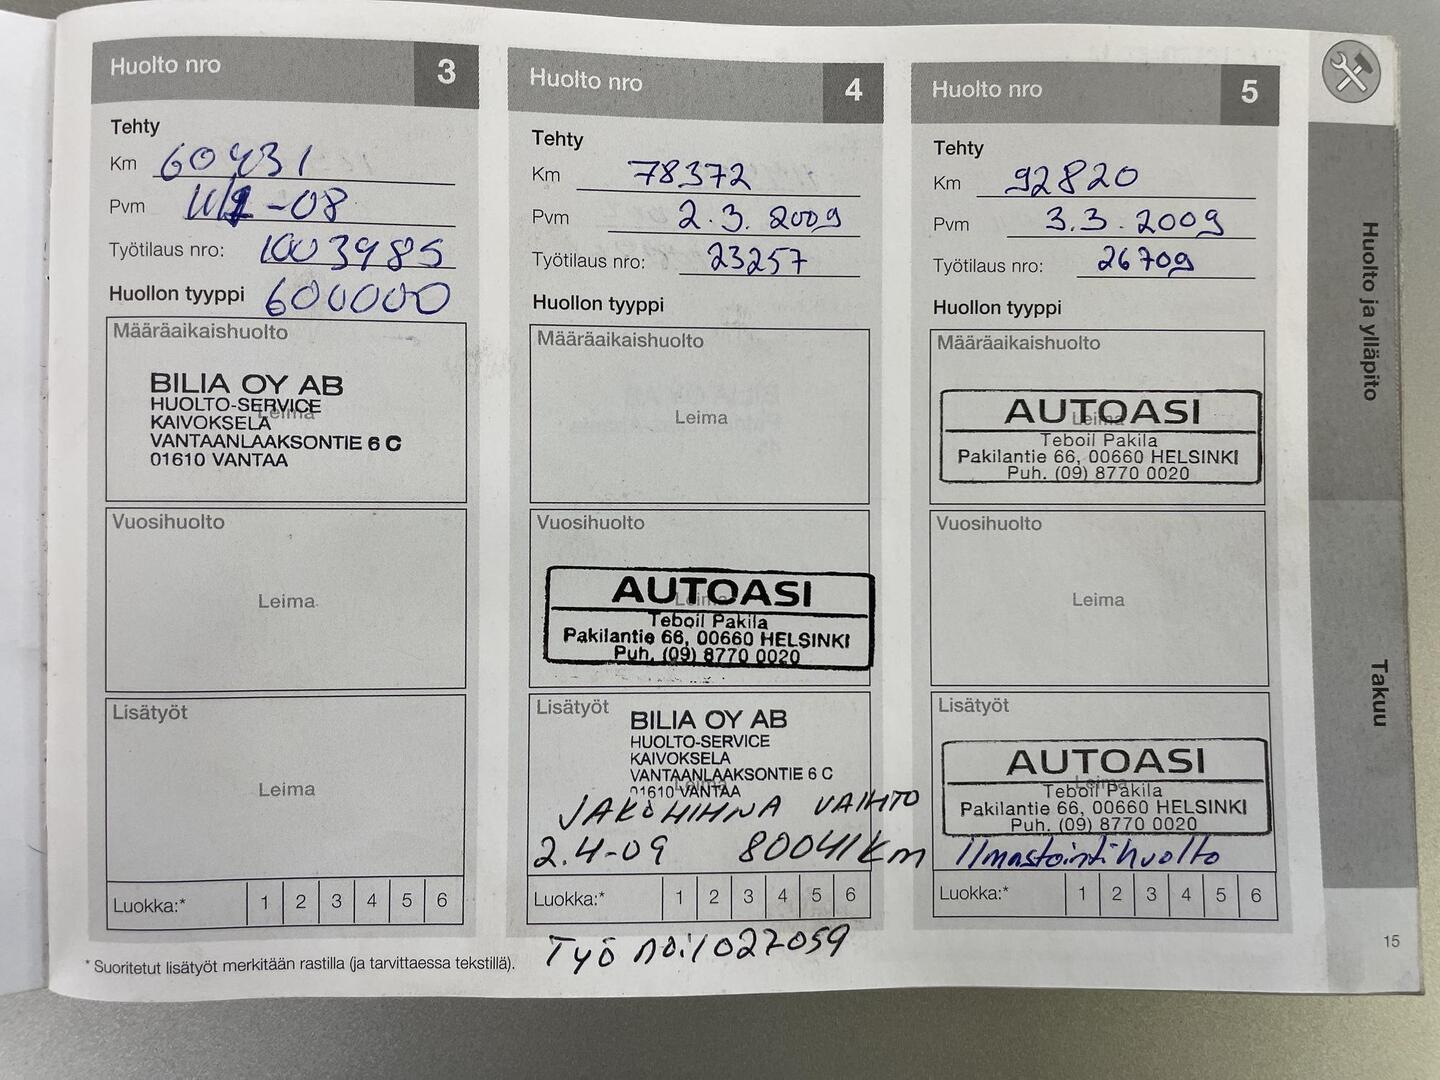 Huolto nro 3
Tehty
Km 60431
Pvm -08
Työtilaus nro: 1003985
Huollon tyyppi 600000
Määräaikaishuolto
BILIA OY AB
HUOLTO-SERVICE
Leima
KAIVOKSELA
VANTAANLAAKSONTIE 6 C
01610 VANTAA
Vuosihuolto
Leima
Lisätyöt
Leima
Luokka:* 1 2 3 4 5 6
* Suoritetut lisätyöt merkitään rastilla (ja tarvittaessa tekstillä).
Huolto nro 4
Tehty
Km 78372
Pvm 2.3.2009
Työtilaus nro: 23257
Huollon tyyppi
Määräaikaishuolto
Leima
Vuosihuolto
AUTOASI
Leima
Teboil Pakila
Pakilantie 66, 00660 HELSINKI
Puh. (09) 8770 0020
Lisätyöt
BILIA OY AB
HUOLTO-SERVICE
KAIVOKSELA
VANTAANLAAKSONTIE 6 C
Leima
01610 VANTAA
JAKOHIHNA VAIHTO
2.4-09 80041 km
Luokka:* 1 2 3 4 5 6
Työ no:1027059
Huolto nro 5
Tehty
Km 92820
Pvm 3.3.2009
Työtilaus nro: 26709
Huollon tyyppi
Määräaikaishuolto
AUTOASI
Leima
Teboil Pakila
Pakilantie 66, 00660 HELSINKI
Puh. (09) 8770 0020
Vuosihuolto
Leima
Lisätyöt
AUTOASI
Leima
Teboil Pakila
Pakilantie 66, 00660 HELSINKI
Puh. (09) 8770 0020
Ilmastointihuolto
Luokka:* 1 2 3 4 5 6
Huolto ja ylläpito
Takuu
15